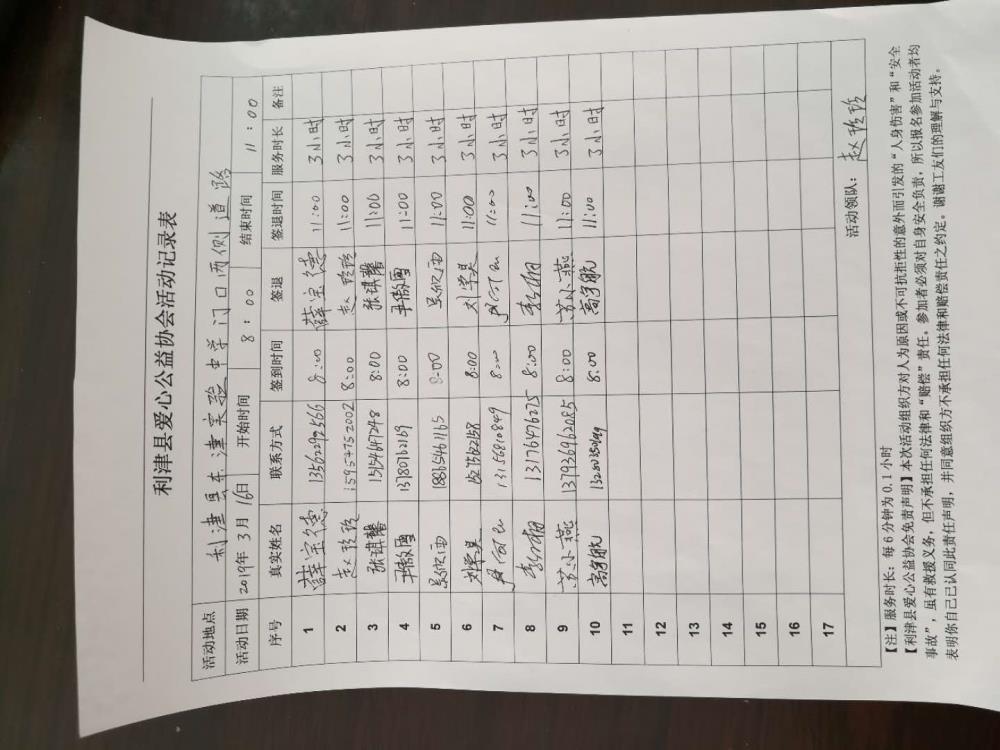 利津县爱心公益协会活动记录表
活动地点 利津县东津实验中学门口西侧道路
活动日期 2019年3月16日 开始时间 8:00 结束时间 11:00
序号 真实姓名 联系方式 签到时间 签退 签退时间 服务时长 备注
1 薛宝德 13562292566 8:00 薛宝德 11:00 3小时
2 赵玲玲 15954752002 8:00 赵玲玲 11:00 3小时
3 张琪馨 15154647248 8:00 张琪馨 11:00 3小时
4 13780762169 8:00 11:00 3小时
5 18865461165 8:00 11:00 3小时
6 刘学昊 8:00 刘学昊 11:00 3小时
7 13156810849 8:00 11:00 3小时
8 13176476275 8:00 11:00 3小时
9 苏小燕 13793692085 8:00 苏小燕 11:00 3小时
10 8:00 11:00 3小时
11
12
13
14
15
16
17
活动领队：赵玲玲
【注】服务时长：每6分钟为0.1小时
【利津县爱心公益协会免责声明】本次活动组织方对人为原因或不可抗拒性的意外而引发的“人身伤害”和“安全
事故”，虽有救援义务，但不承担任何法律和“赔偿”责任。参加者必须对自身安全负责，所以报名参加活动者均
表明你自己已认同此责任声明，并同意组织方不承担任何法律和赔偿责任之约定。谢谢工友们的理解与支持。